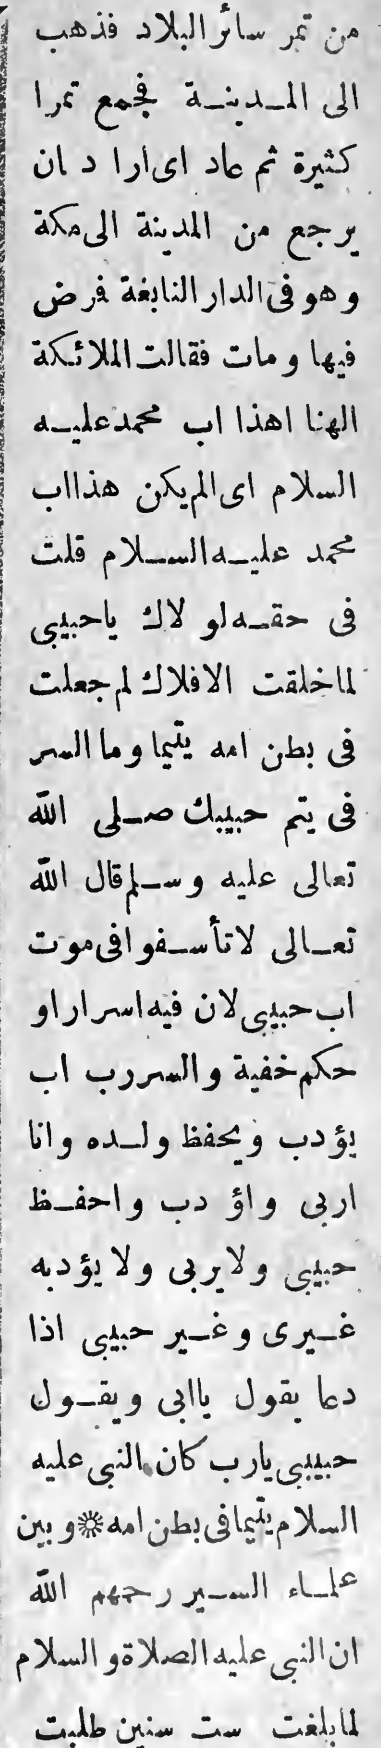 من تمر سائر البلاد فذهب
الى المدينة فجمع تمرا
كثيرة ثم عاد اى ارا د ان
يرجع من المدينة الى مكة
وهو فى الدار النابغة فرض
فيها ومات فقالت الملائكة
الهنا اهذا اب محمد عليه
السلام اى الم يكن هذا اب
محمد عليه السلام قلت
فى حقه لو لاك ياحبيبى
لما خلقت الافلاك لم جعلت
فى بطن امه يتيما وما السر
فى يتم حبيبك صلى الله
تعالى عليه وسلم قال الله
تعالى لا تأسفوا فى موت
اب حبيبى لان فيه اسرارا و
حكم خفية والسررب اب
يؤدب ويحفظ ولده وانا
اربى واؤ دب واحفظ
حبيبى ولا يربى ولا يؤدبه
غيرى وغير حبيبى اذا
دعا يقول ياابى ويقول
حبيبى يارب كان النبى عليه
السلام يتيما فى بطن امه ۞ وبين
علماء السير رحمهم الله
ان النبى عليه الصلاة والسلام
لما بلغت ست سنين طلبت